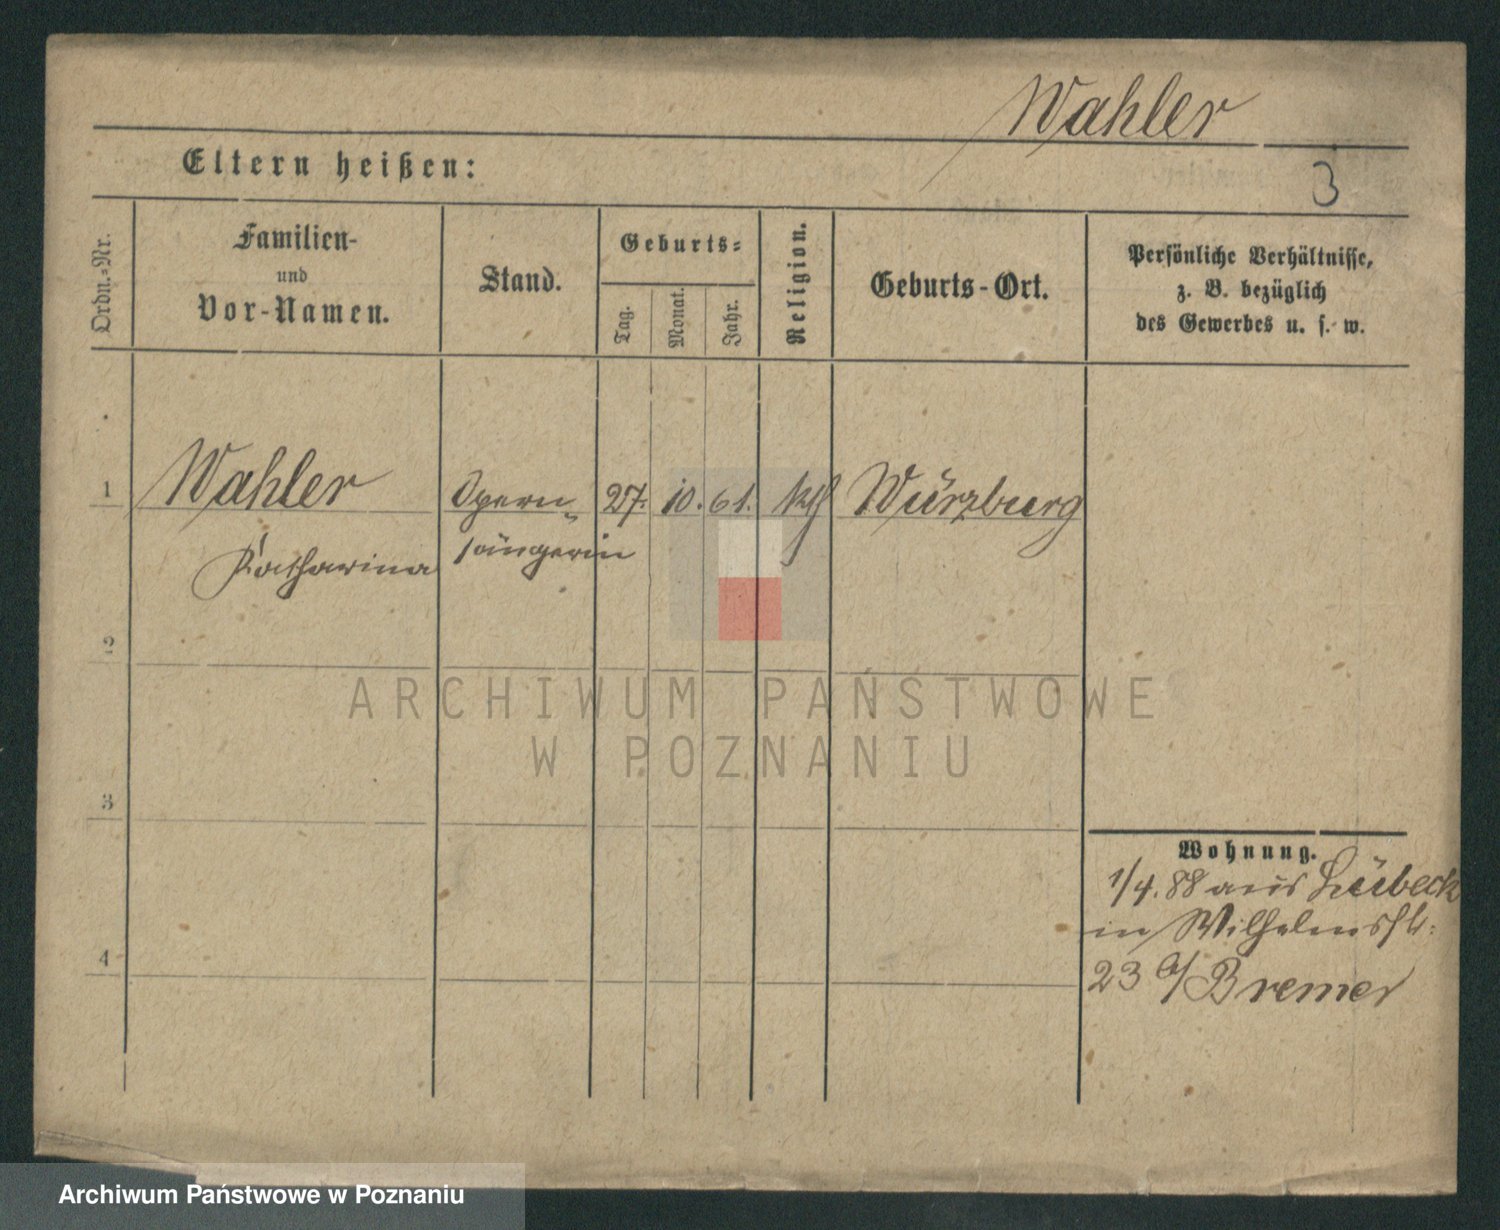 Wahler
Eltern heißen:
3
Ordn.=Nr.
Familien-
und
Vor-Namen.
Stand.
Geburts=
Tag.
Monat.
Jahr.
Religion.
Geburts-Ort.
Persönliche Verhältnisse,
z. B. bezüglich
des Gewerbes u. s. w.
1 Wahler Opern 27. 10. 61. kth Würzburg
Katharina sängerin
2
ARCHIWUM PAŃSTWOWE
W POZNANIU
3
Wohnung.
1/4. 88 aus Lübeck
in Wilhelmsstr.
4
23 a/ Bremer
Archiwum Państwowe w Poznaniu